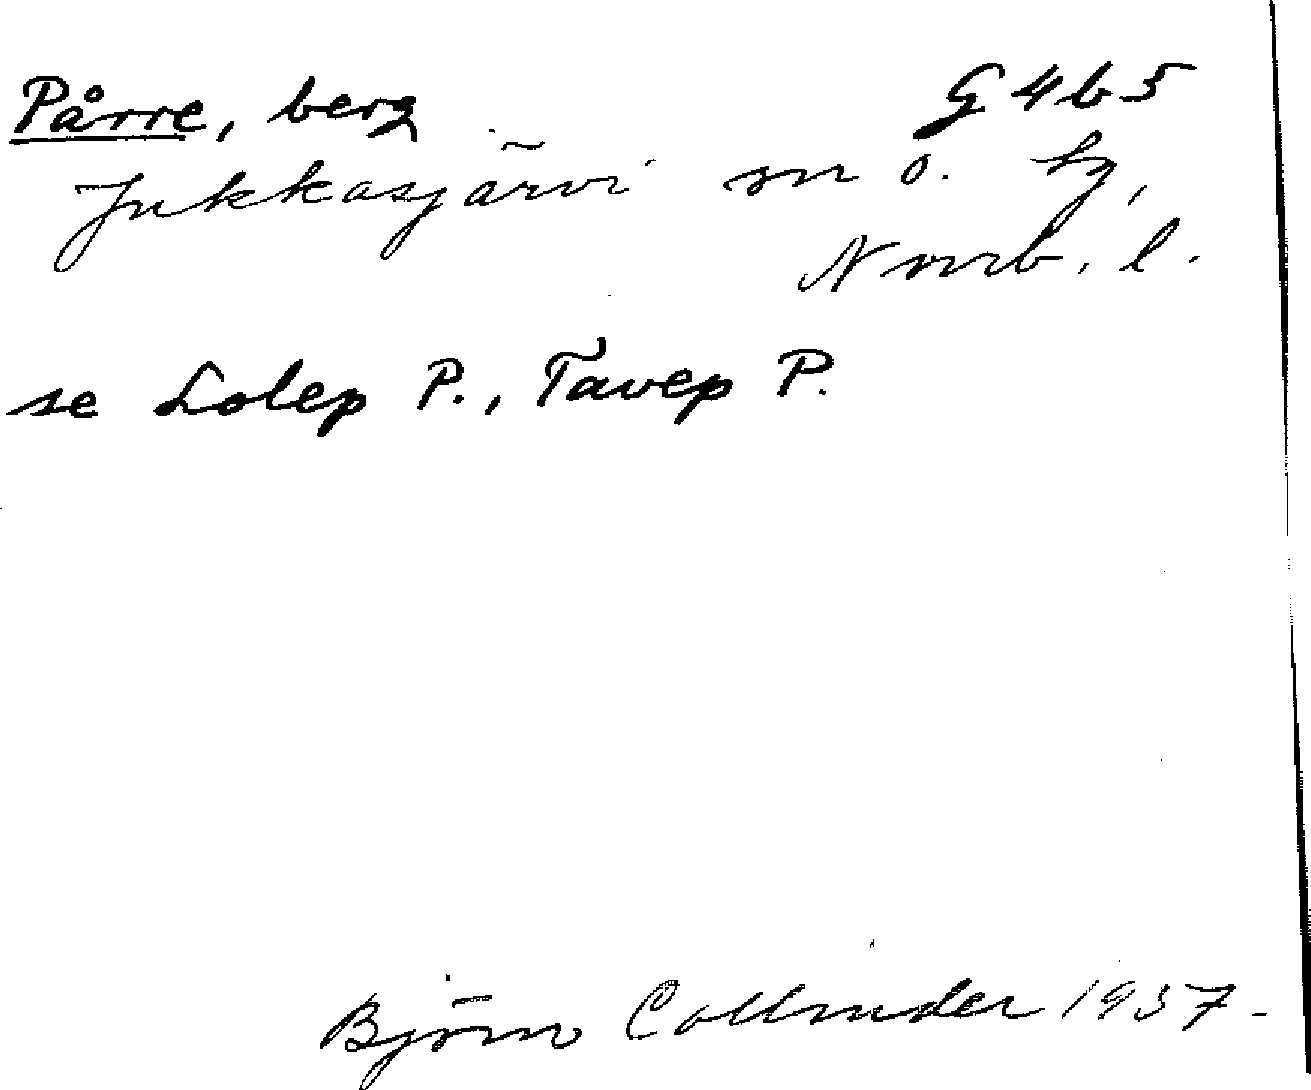 Pårre, berg G 4 b 5
Jukkasjärvi sn o. hg,
Norrb. l.
se Lolep P., Tavep P.
Björn Collinder 1957